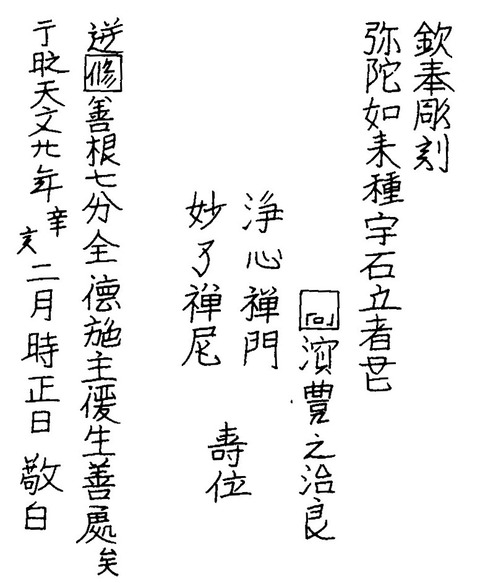 欽奉彫刻
弥陀如来種字石立者
向濱豊之治良
浄心禅門
妙了禅尼
壽位
逆修善根七分全徳施主優生善處矣
于天文廿年辛亥二月時正日敬白